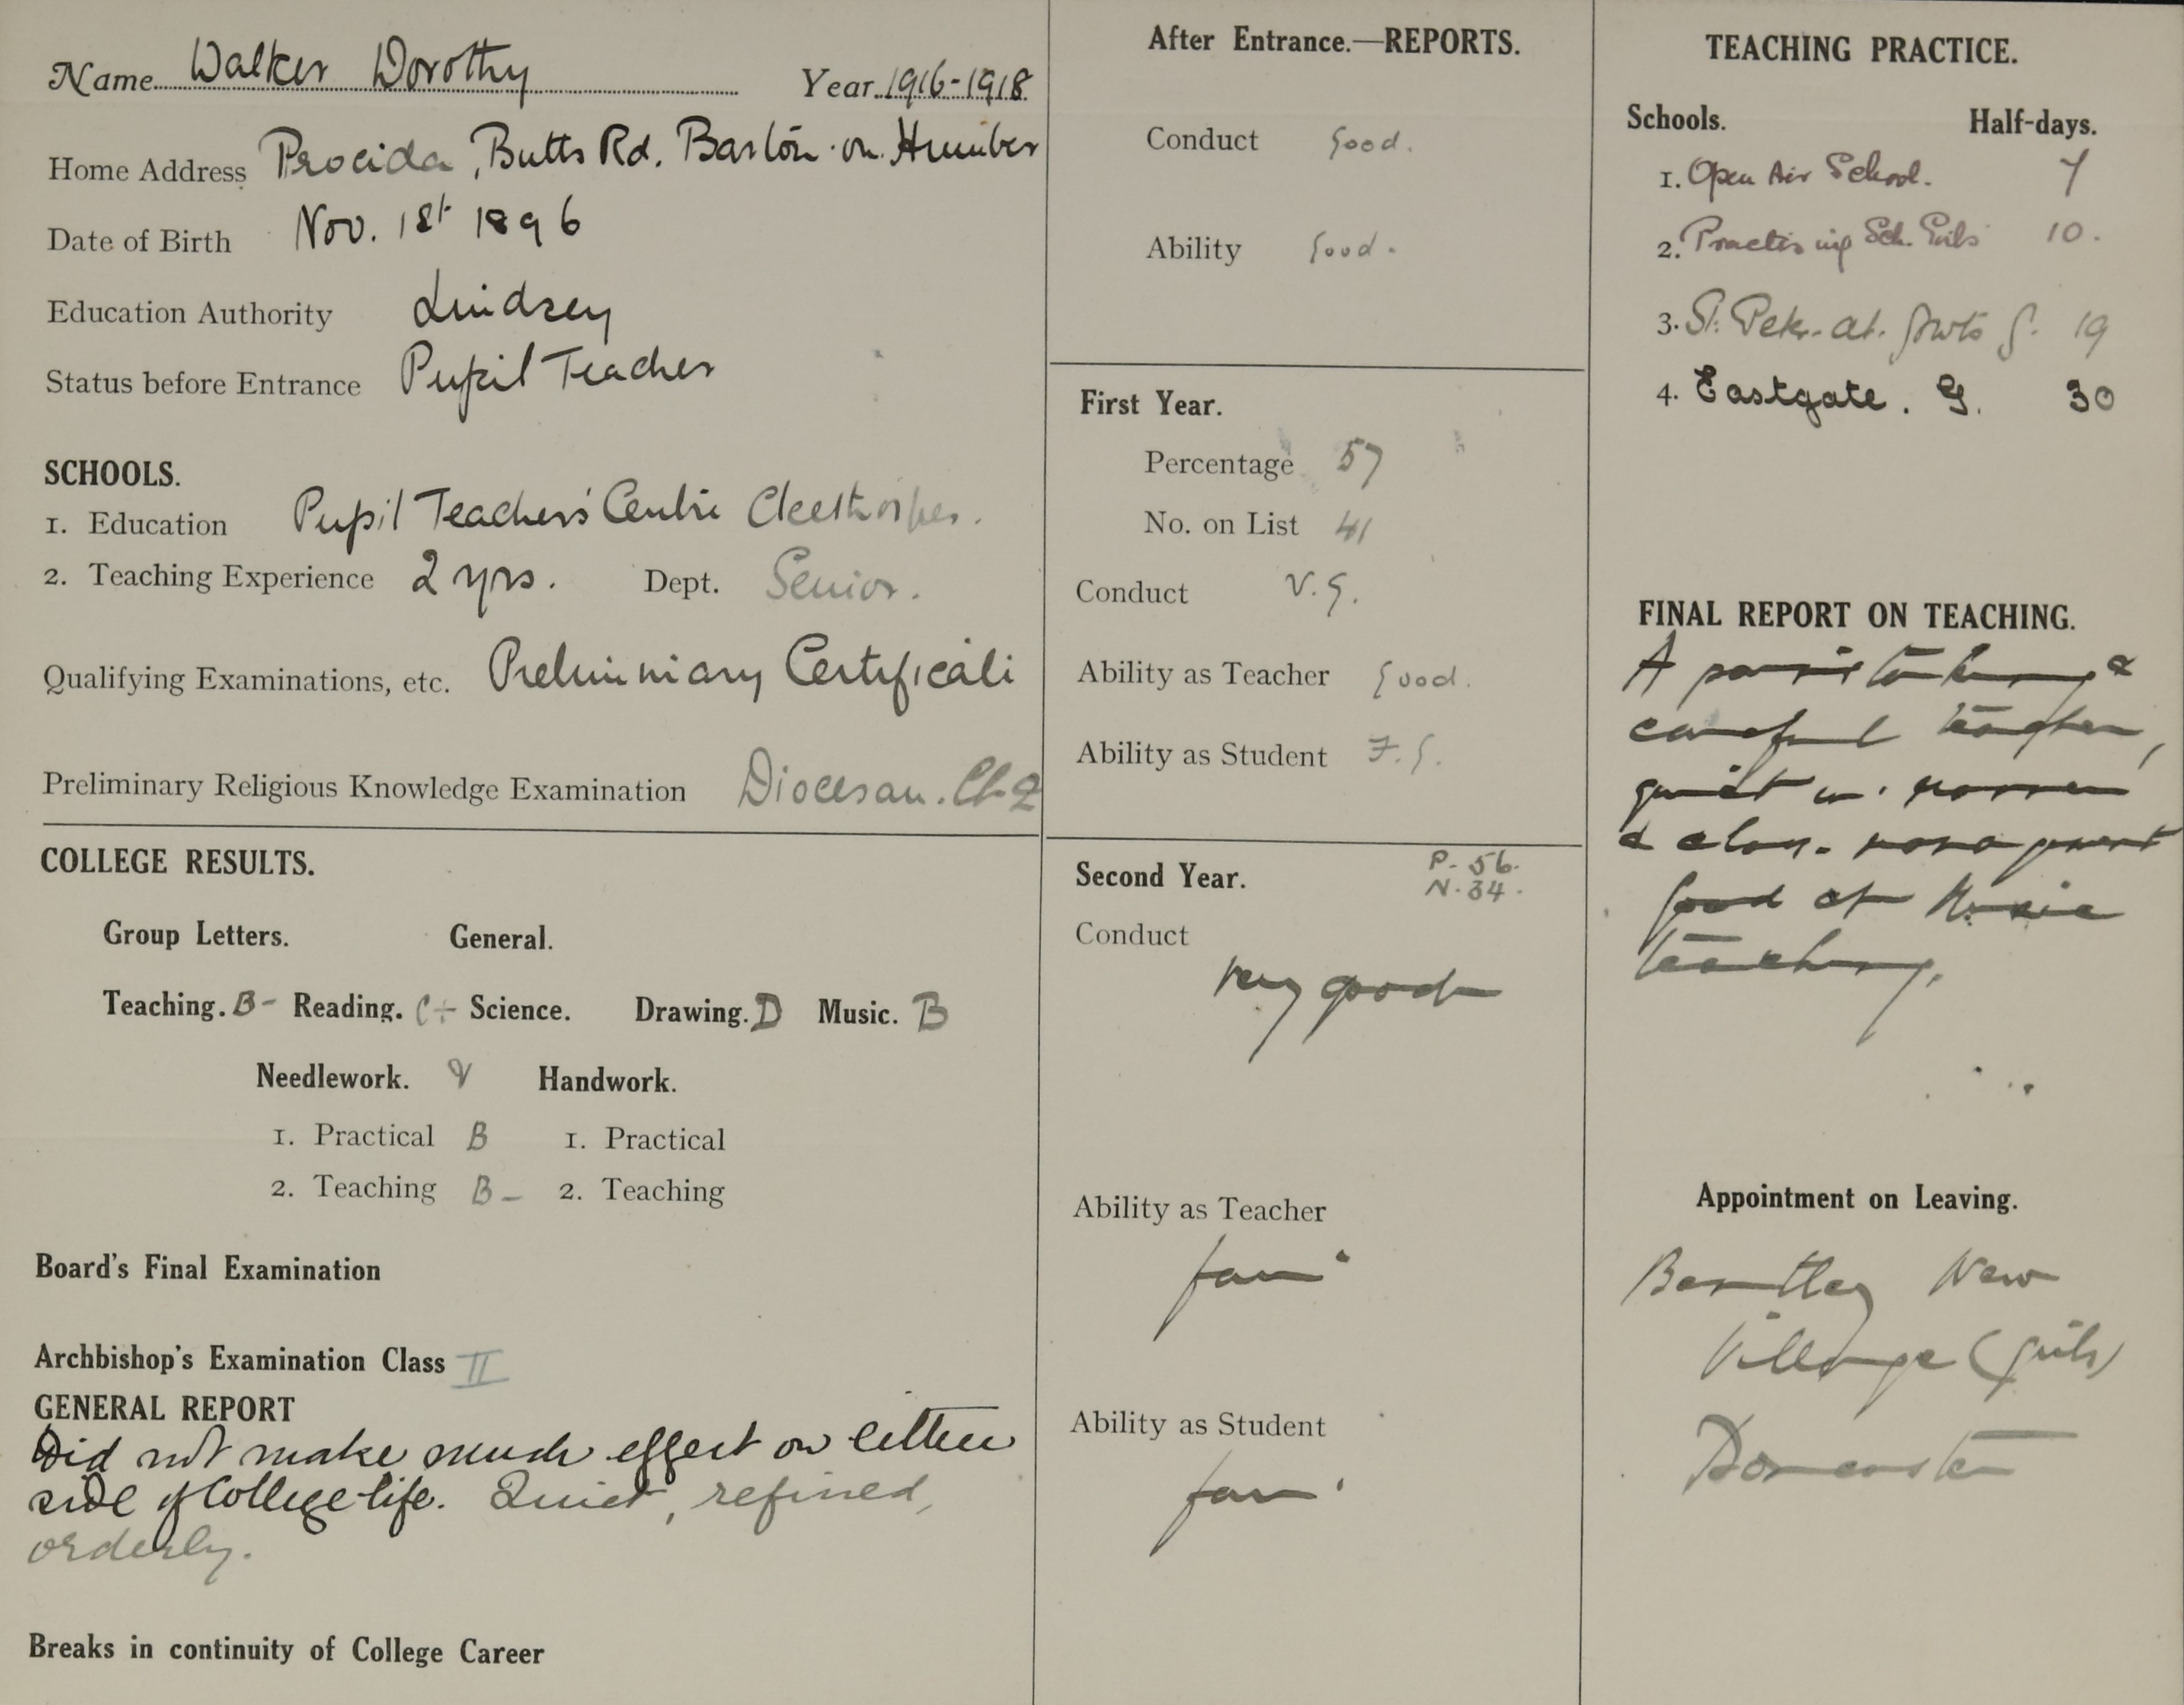 Name Walker Dorothy Year 1916-1918
Home Address Procida, Butts Rd. Barton-on-Humber
Date of Birth Nov. 1st 1896
Education Authority Lindsey
Status before Entrance Pupil Teacher
SCHOOLS.
1. Education Pupil Teachers' Centre Cleethorpes.
2. Teaching Experience 2 yrs. Dept. Senior.
Qualifying Examinations, etc. Preliminary Certificate
Preliminary Religious Knowledge Examination Diocesan. Cl. 2
COLLEGE RESULTS.
Group Letters. General.
Teaching. B- Reading. C+ Science. Drawing. D Music. B
Needlework. Handwork.
1. Practical B 1. Practical
2. Teaching B- 2. Teaching
Board's Final Examination
Archbishop's Examination Class II
GENERAL REPORT
Did not make much effect on either
side of College life. Quiet, refined,
orderly.
Breaks in continuity of College Career
After Entrance.—REPORTS.
Conduct Good.
Ability Good.
First Year.
Percentage 57
No. on List 41
Conduct V.G.
Ability as Teacher Good.
Ability as Student F.G.
Second Year. P. 56.
N. 34.
Conduct
Very good
Ability as Teacher
fair
Ability as Student
fair
TEACHING PRACTICE.
Schools. Half-days.
1. Open Air School. 7
2. Practising Sch. Girls 10.
3. St. Peter-at-Gowts G. 19
4. Eastgate. G. 30
FINAL REPORT ON TEACHING.
A painstaking &
careful teacher,
quiet in manner
& class-management
Good at Music
teaching.
Appointment on Leaving.
Bentley New
Village (Girls)
Doncaster